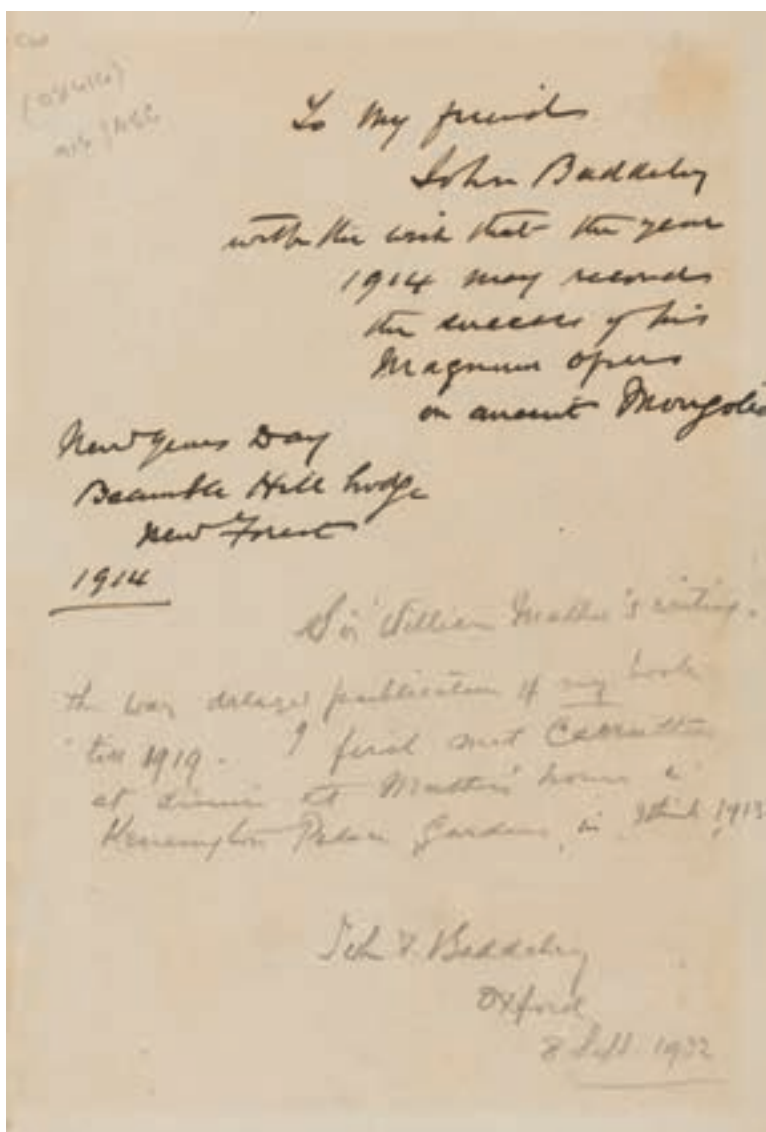 To My friend
John Baddeley
with the wish that the year
1914 may record
the success of his
Magnum opus
on ancient Mongolia
New Years Day
Bramble Hill Lodge
New Forest
1914
Sir William Mather's writing.
The war delayed publication of my book
till 1919. I first met Carruthers
at dinner at Mather's house in
Kensington Palace Gardens, in I think, 1913
John F. Baddeley
Oxford
8 Sept. 1932